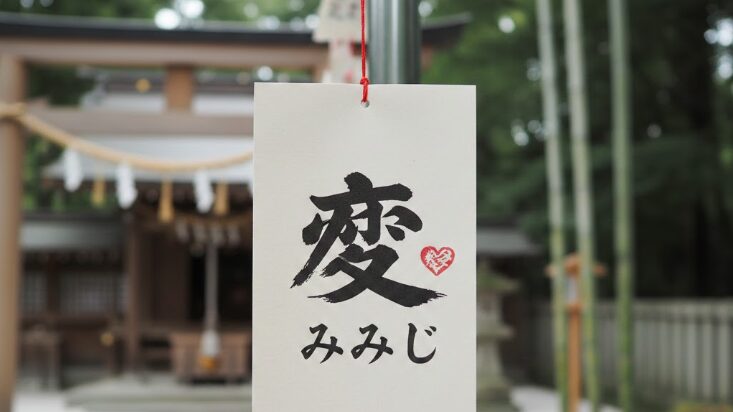 変
みみじ